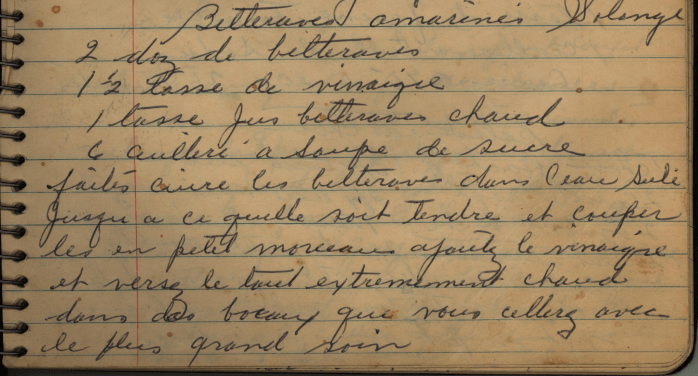 Betteraves marinés Solange
2 doz de betteraves
1 1/2 tasse de vinaigre
1 tasse jus betteraves chaud
6 cuilleré a soupe de sucre
faités cuire les betteraves dans l'eau salé
jusqu a ce quelle soit tendre et couper
les en petit morceau ajoutez le vinaigre
et versez le tout extremement chaud
dans des bocaux que vous cellerez avec
le plus grand soin